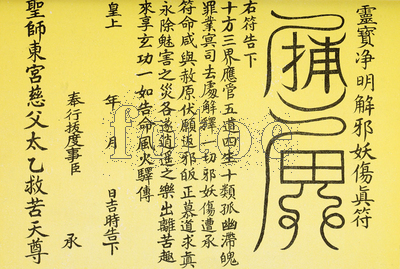 靈寶淨明解邪妖傷眞符
右符告下
十方三界應官五道四生十類孤幽滯魄
罪業冥司去處解釋一切邪妖傷遭承
符命咸與赦原伏願返邪皈正慕道求真
永除魅害之災各遂逍遙之樂出離苦趣
來享玄功一如告命風火驛傳
皇上 年 月 日吉時告下
奉行拔度事臣 承
聖師東宮慈父太乙救苦天尊
fotoe